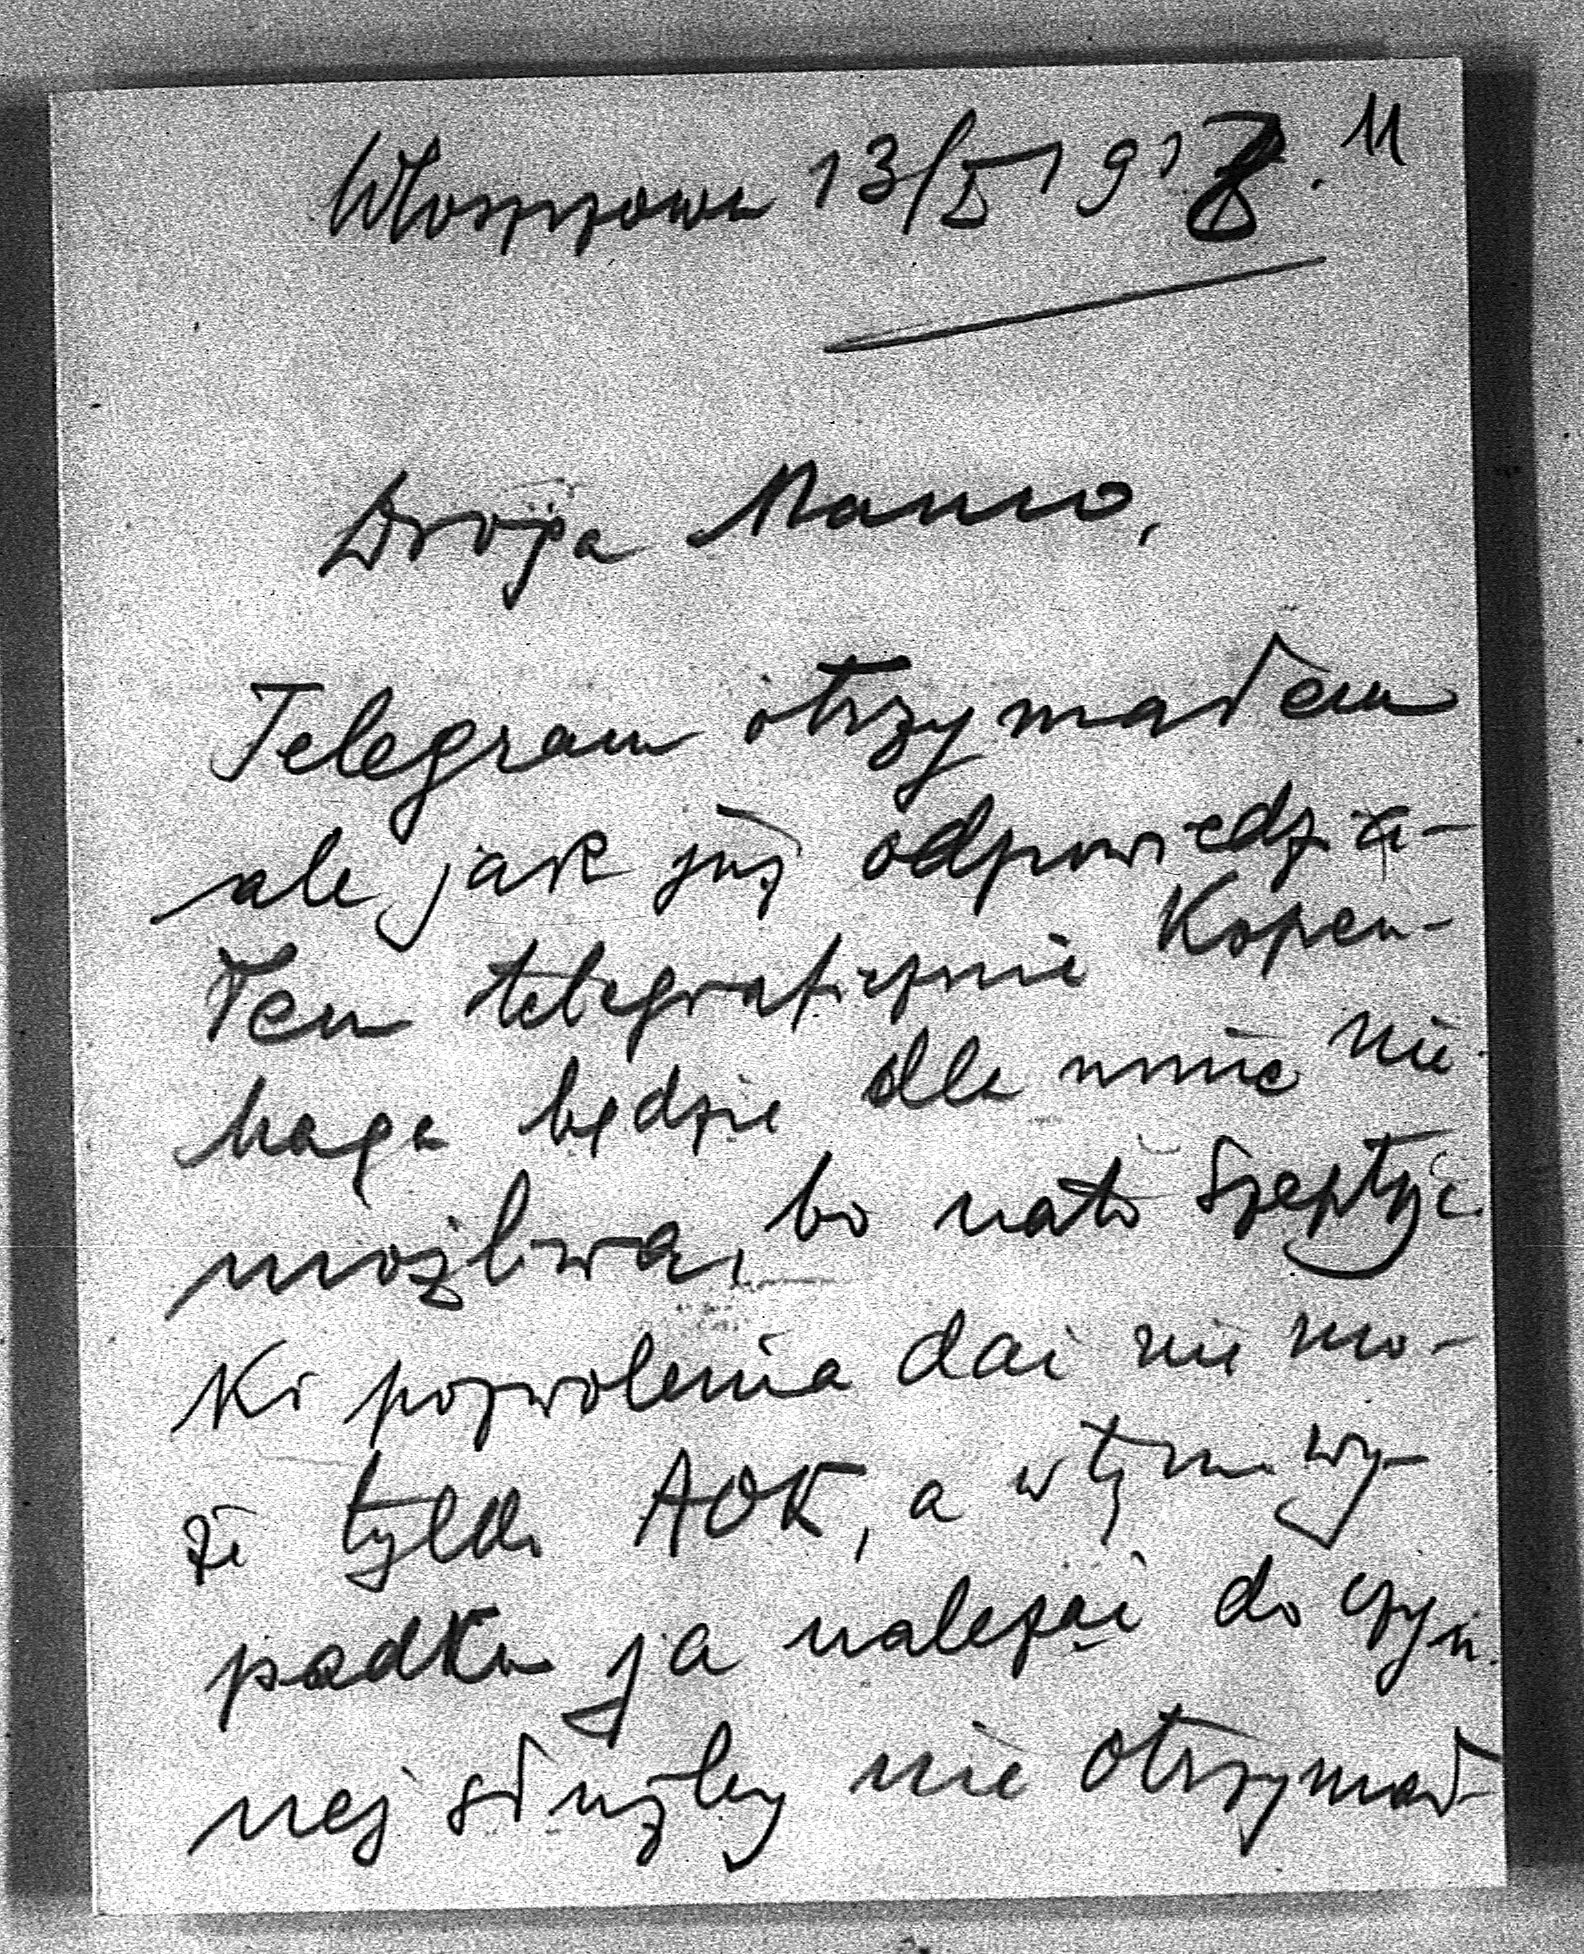 Włoszczowa 13/I 1918. 11
Droga Mamo,
Telegram otrzymałem
ale jak już odpowiedzia-
łem telegraficznie Kopen-
haga będzie dla mnie nie
możliwa, bo na to Szeptyc
ki pozwolenia dać nie mo-
że tylko AOK, a w tym wy-
padku ja należąc do czyn.
nej służby nie otrzymał-